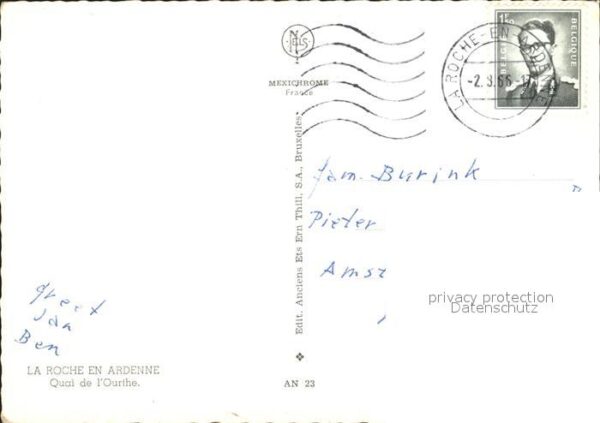 NELS
MEXICHROME
France
LA ROCHE-EN-ARDENNE
-2.
1F50
BELGIQUE
Edit. Anciens Ets Ern Thill, S.A., Bruxelles.
fam. Burink
Pieter
Amst
privacy protection
Datenschutz
Greet
Jan
Ben
LA ROCHE EN ARDENNE
Quai de l'Ourthe.
AN 23